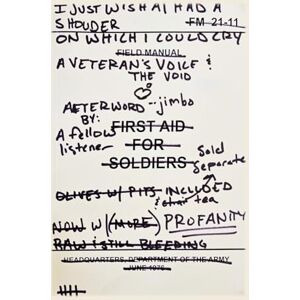 I JUST WISH AI HAD A
SHOUDER
FM 21-11
ON WHICH I COULD CRY
FIELD MANUAL
A VETERAN'S VOICE &
THE VOID
AFTERWORD --jimbo
BY:
A fellow
listener
FIRST AID
FOR
SOLDIERS
Sold
Separate
OLIVES W/ PITS INCLUDED
& tea
NOW W/ (MORE) PROFANITY
RAW & STILL BLEEDING
HEADQUARTERS, DEPARTMENT OF THE ARMY
JUNE 1976